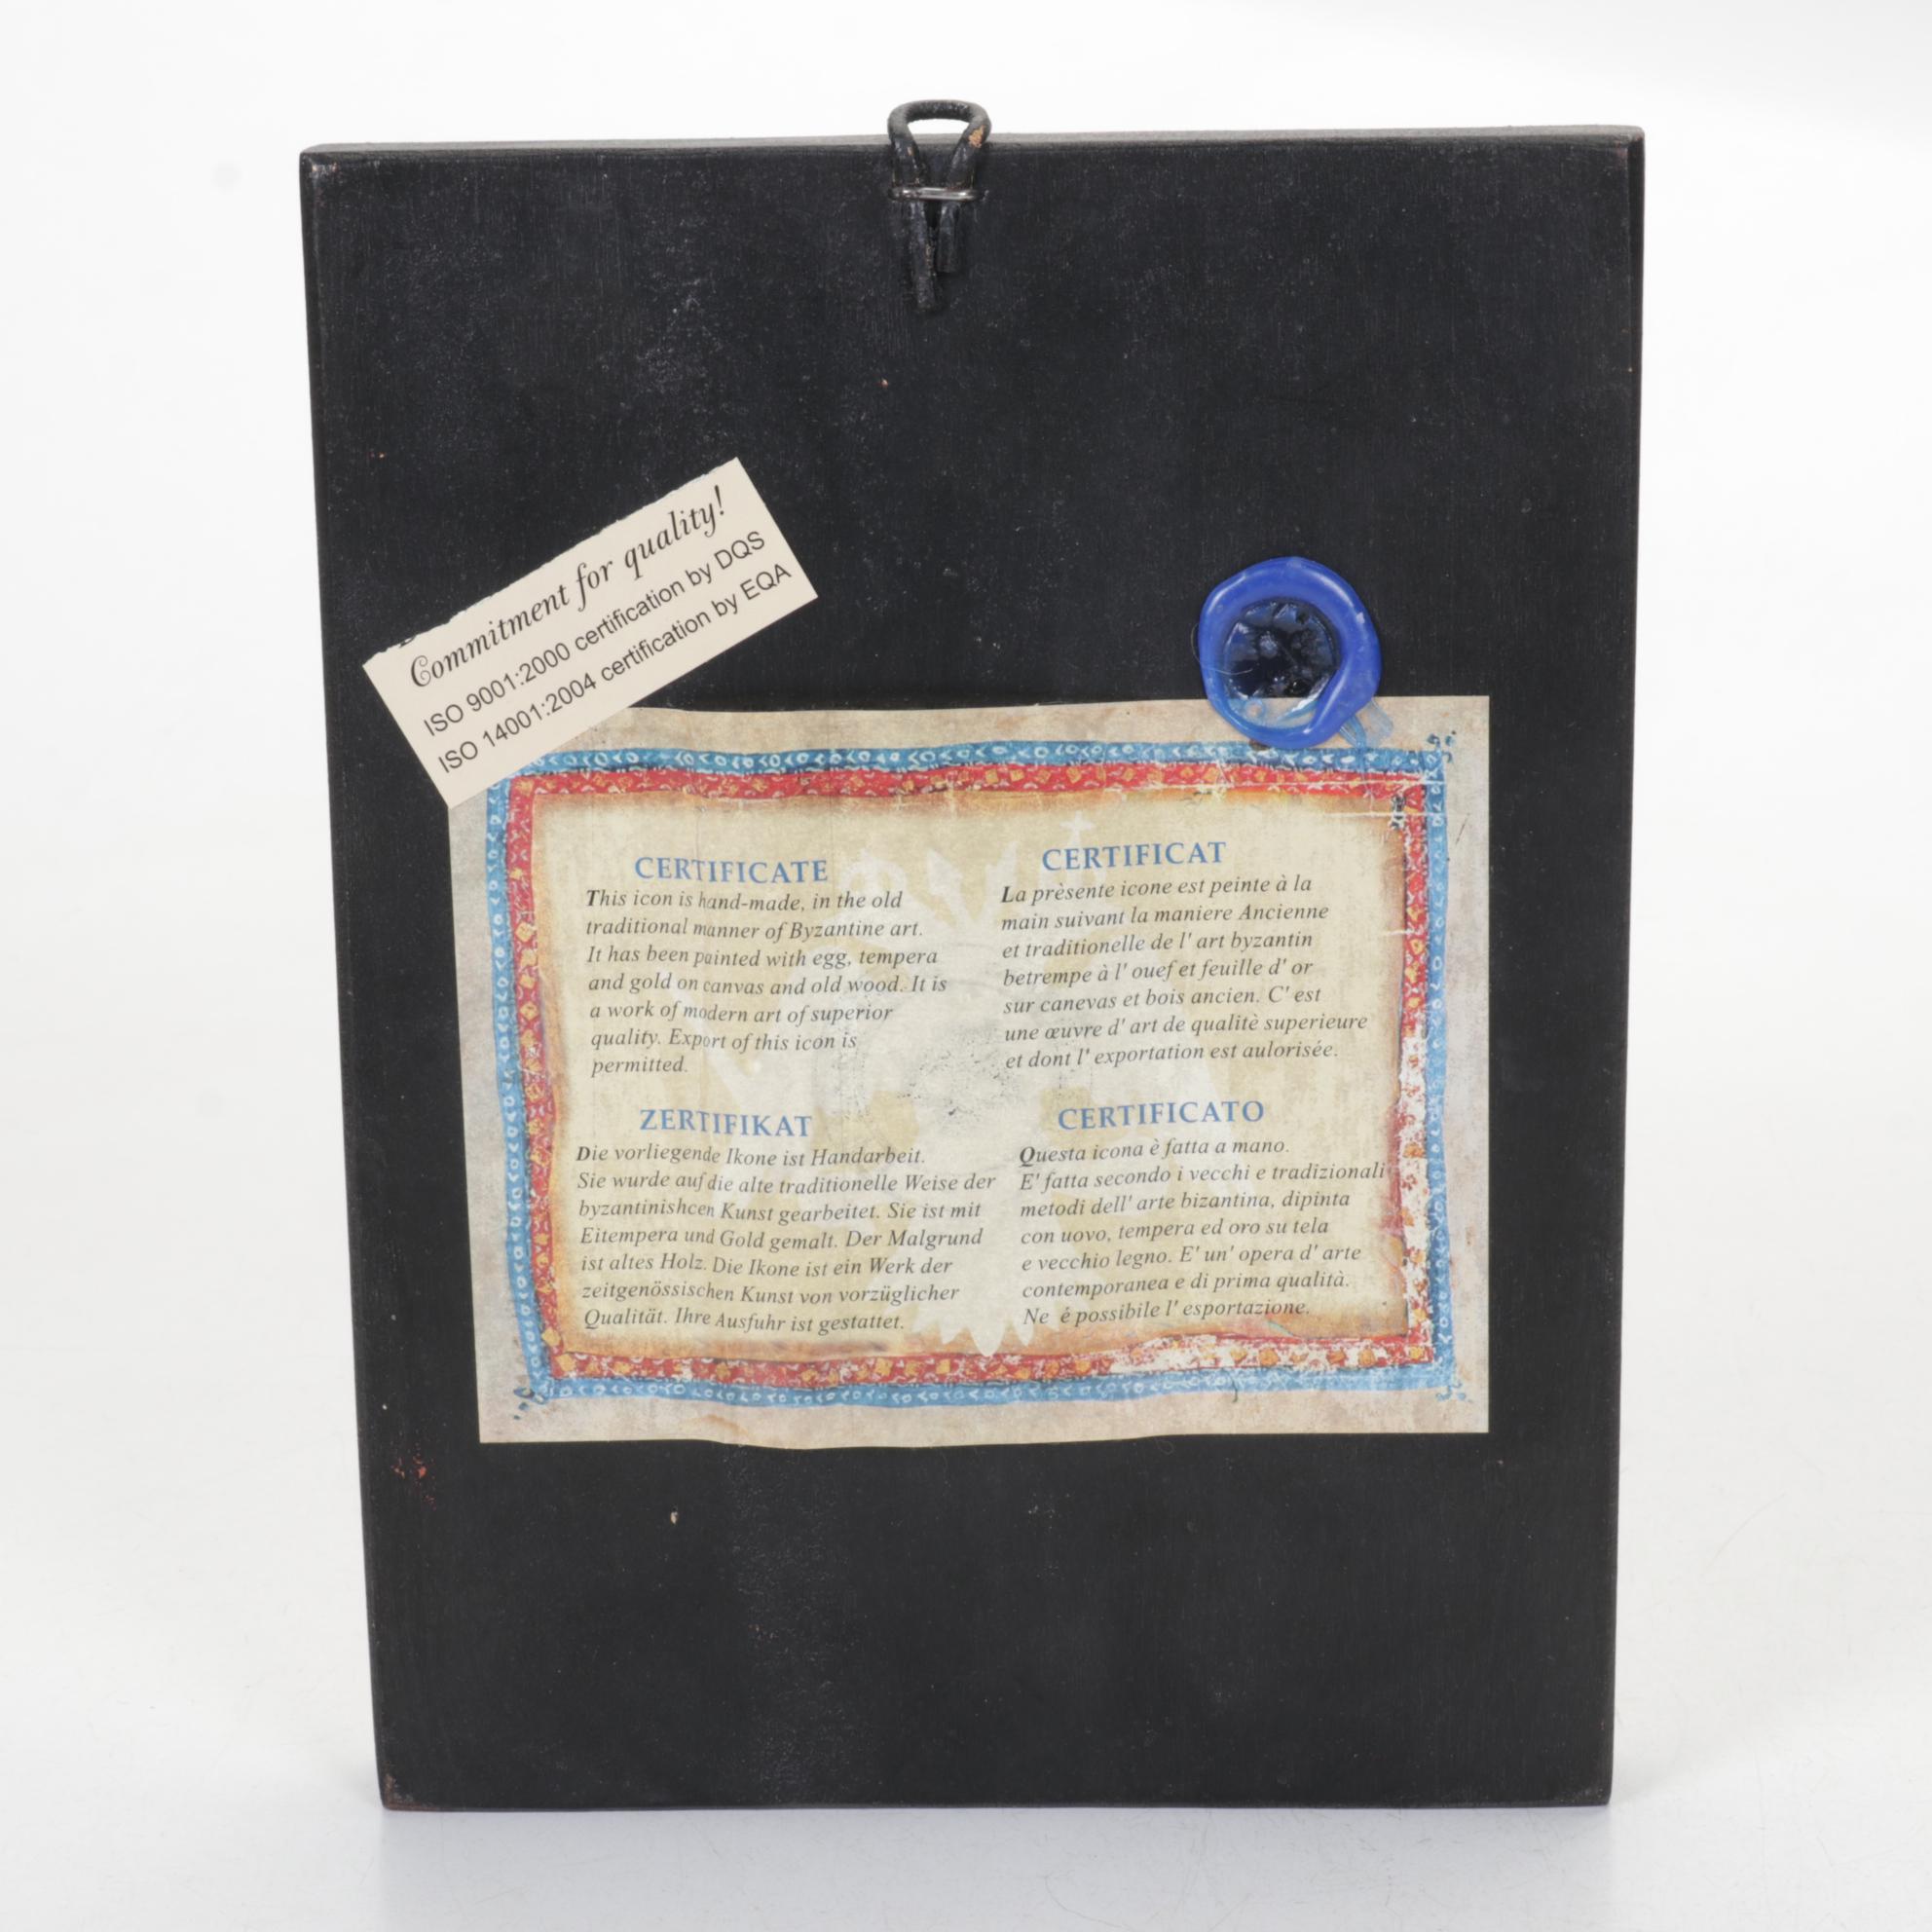 Commitment for quality!
ISO 9001:2000 certification by DQS
ISO 14001:2004 certification by EQA
CERTIFICATE
This icon is hand-made, in the old
traditional manner of Byzantine art.
It has been painted with egg, tempera
and gold on canvas and old wood. It is
a work of modern art of superior
quality. Export of this icon is
permitted.
CERTIFICAT
La prèsente icone est peinte à la
main suivant la maniere Ancienne
et traditionelle de l' art byzantin
betrempe à l' ouef et feuille d' or
sur canevas et bois ancien. C' est
une œuvre d' art de qualitè superieure
et dont l' exportation est aulorisée.
ZERTIFIKAT
Die vorliegende Ikone ist Handarbeit.
Sie wurde auf die alte traditionelle Weise der
byzantinishcen Kunst gearbeitet. Sie ist mit
Eitempera und Gold gemalt. Der Malgrund
ist altes Holz. Die Ikone ist ein Werk der
zeitgenössischen Kunst von vorzüglicher
Qualität. Ihre Ausfuhr ist gestattet.
CERTIFICATO
Questa icona è fatta a mano.
E' fatta secondo i vecchi e tradizionali
metodi dell' arte bizantina, dipinta
con uovo, tempera ed oro su tela
e vecchio legno. E' un' opera d' arte
contemporanea e di prima qualità.
Ne é possibile l' esportazione.